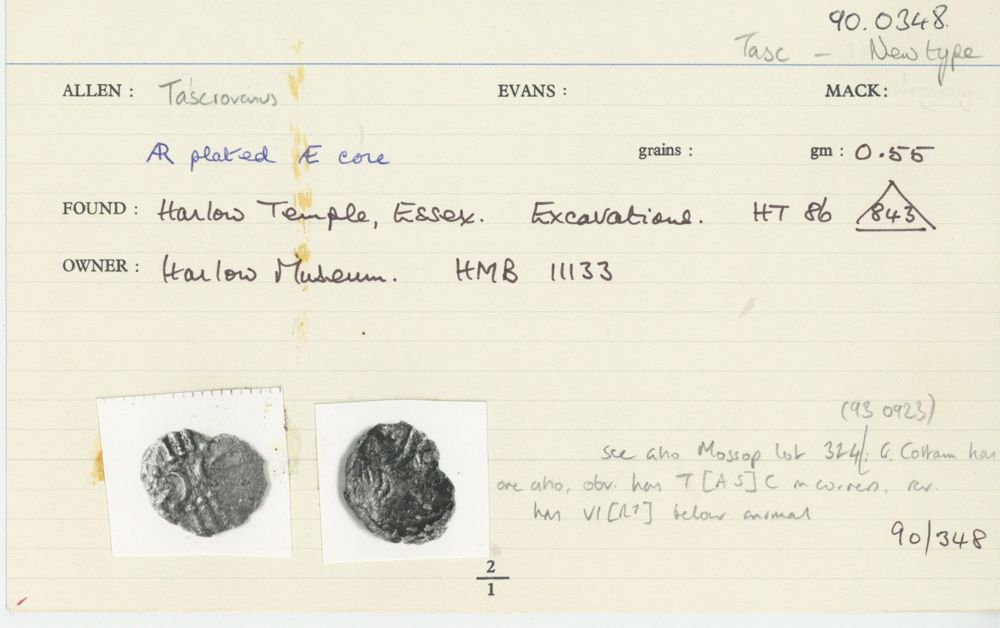 90.0348.
Tasc - New type
ALLEN : Tasciovanus EVANS : MACK:
AR plated Æ core grains : gm : 0.55
FOUND : Harlow Temple, Essex. Excavations. HT 86 843
OWNER : Harlow Museum. HMB 11133
(93 0923)
see also Mossop lot 324; G. Cottam has
one also, obv. has T[AS]C in corners, rev.
has VI[R?] below animal
90/348
2
1